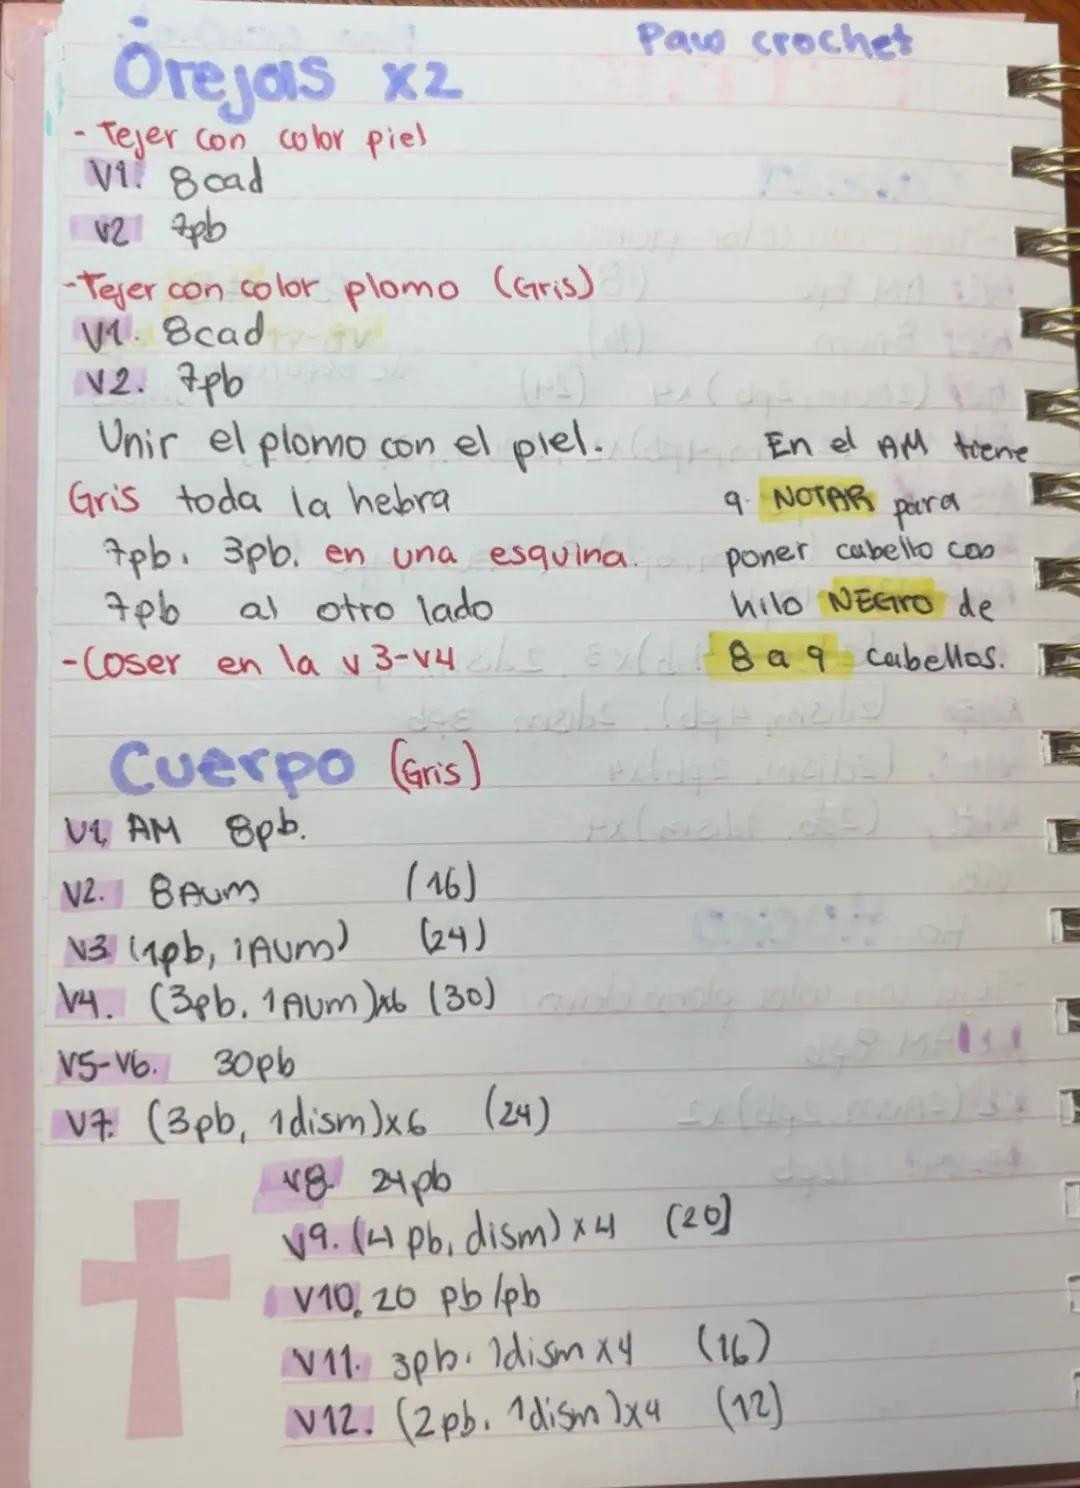 Paw crochet
Orejas x2
- Tejer con color piel
V1. 8cad
V2 7pb
-Tejer con color plomo (Gris)
V1. 8cad
V2. 7pb
Unir el plomo con el piel.
Gris toda la hebra
7pb, 3pb. en una esquina.
7pb al otro lado
-Coser en la v3-v4
En el AM tiene
9. NOTAR para
poner cabello con
hilo NEGro de
8 a 9 cabellos.
Cuerpo (Gris)
V1, AM 8pb.
V2. 8Aum (16)
V3 (1pb, 1Aum) (24)
V4. (3pb, 1Aum)x6 (30)
V5-V6. 30pb
V7. (3pb, 1dism)x6 (24)
V8. 24pb
V9. (4 pb, dism) x4 (20)
V10. 20 pb/pb
V11. 3pb. 1dism x4 (16)
V12. (2pb. 1dism)x4 (12)